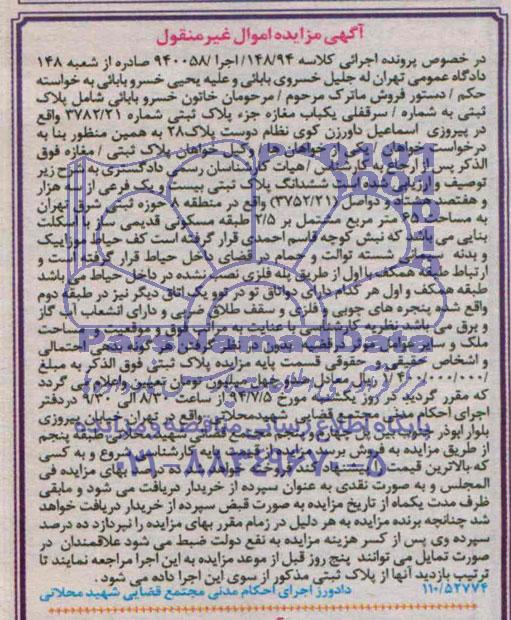 آگهی مزایده اموال غیر منقول
در خصوص پرونده اجرائی کلاسه ۱۴۸/۹۴/اجرا /۹۴۰۰۵۸ صادره از شعبه ۱۴۸
دادگاه عمومی تهران له جلیل خسروی بابائی و علیه یحیی خسرو بابائی به خواسته
حکم / دستور فروش ماترک مرحوم / مرحومان خاتون خسرو بابائی شامل پلاک
ثبتی به شماره / سرقفلی یکباب مغازه جزء پلاک ثبتی شماره ۳۷۸۲/۲۱ واقع
در پیروزی اسماعیل داورزن کوی نظام دوست پلاک۲۸ به همین منظور بنا به
درخواست خواهان / یکی از خواهان ها / وکیل خواهان پلاک ثبتی / مغازه فوق
الذکر پس از ارجاع به کارشناس / هیات کارشناسان رسمی دادگستری به شرح زیر
توصیف و ارزیابی شده است ششدانگ پلاک ثبتی بیست و یک فرعی از سه هزار
و هفتصد و هشتاد و دو اصلی (۳۷۵۲/۲۱) واقع در منطقه ۸ حوزه ثبتی شرق تهران
به مساحت ۴۵ متر مربع مشتمل بر ۲/۵ طبقه مسکونی قدیمی ساز با اسکلت
بنایی می باشد که نبش کوچه قاسم احمدی قرار گرفته است کف حیاط موزاییک
و بدنه سیمانی شسته توالت و حمام در فضای داخل حیاط قرار گرفته است و
ارتباط طبقه همکف با اول از طریق پله فلزی نصب شده در داخل حیاط می باشد
طبقه همکف و اول هر کدام دارای دو اتاق تو در تو و یک اتاق دیگر نیز در طبقه دوم
واقع شده پنجره های چوبی و فلزی و سقف طلاق ضربی و دارای انشعاب آب گاز
و برق می باشد نظریه کارشناسی با عنایت به مراتب فوق و موقعیت و مساحت
ملک و سایر عوامل موثر در قضیه بدون در نظر گرفتن هر گونه بدهی احتمالی
و اشخاص حقیقی و حقوقی قسمت پایه مزایده پلاک ثبتی فوق الذکر به مبلغ
ریال معادل میلیون تومان تعیین و اعلام می گردد
که مقرر گردید در روز یکشنبه مورخ ۹۴/۷/۵ از ساعت ۸/۳۰ الی ۹/۳۰ در دفتر
اجرای احکام مدنی مجتمع قضایی شهید محلاتی واقع در تهران خیابان پیروزی
بلوار ابوذر جنوب بین پل چهارم و پنجم مجتمع قضائی شهید محلاتی طبقه پنجم
از طریق مزایده به فروش برسد مزایده از قیمت پایه کارشناسی شروع و به کسی
که بالاترین قیمت را پیشنهاد کند فروخته خواهد شد ده درصد بهای مزایده فی
المجلس و به صورت نقدی به عنوان سپرده از خریدار دریافت می شود و مابقی
ظرف مدت یکماه از تاریخ مزایده به صورت قبض سپرده از خریدار دریافت خواهد
شد چنانچه برنده مزایده به هر دلیل در زمام مقرر بهای مزایده را نپردازد ده درصد
سپرده وی پس از کسر هزینه مزایده به نفع دولت ضبط می شود علاقمندان در
صورت تمایل می توانند پنج روز قبل از موعد مزایده به این اجرا مراجعه نمایند تا
ترتیب بازدید آنها از پلاک ثبتی مذکور از سوی این اجرا داده می شود.
۱۱۰/۵۲۷۷۴ دادورز اجرای احکام مدنی مجتمع قضایی شهید محلاتی
ParsNamadData
پایگاه اطلاع رسانی مناقصه و مزایده
۰۲۱-۸۸۳۴۹۶۷۰-۵